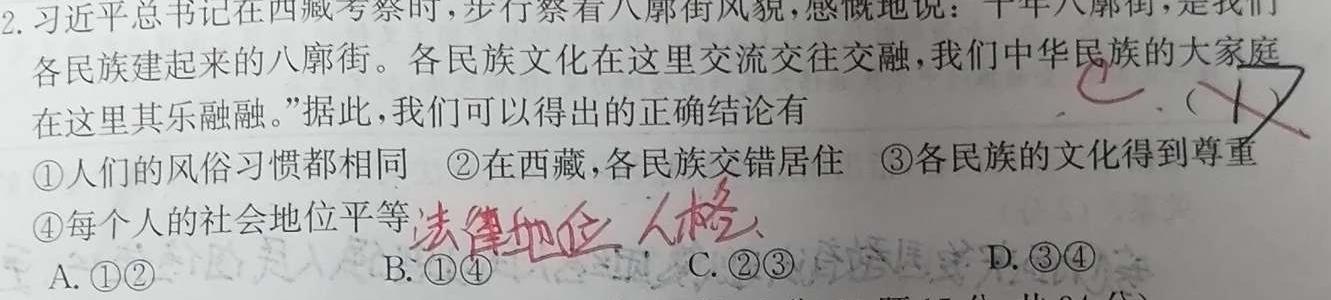 2.习近平总书记在西藏考察时,步行察看八廓街风貌,感慨地说:“千年八廓街,是我们
各民族建起来的八廓街。各民族文化在这里交流交往交融,我们中华民族的大家庭
在这里其乐融融。”据此,我们可以得出的正确结论有 C ( D )
①人们的风俗习惯都相同 ②在西藏,各民族交错居住 ③各民族的文化得到尊重
④每个人的社会地位平等 法律地位、人格、
A. ①② B. ①④ C. ②③ D. ③④